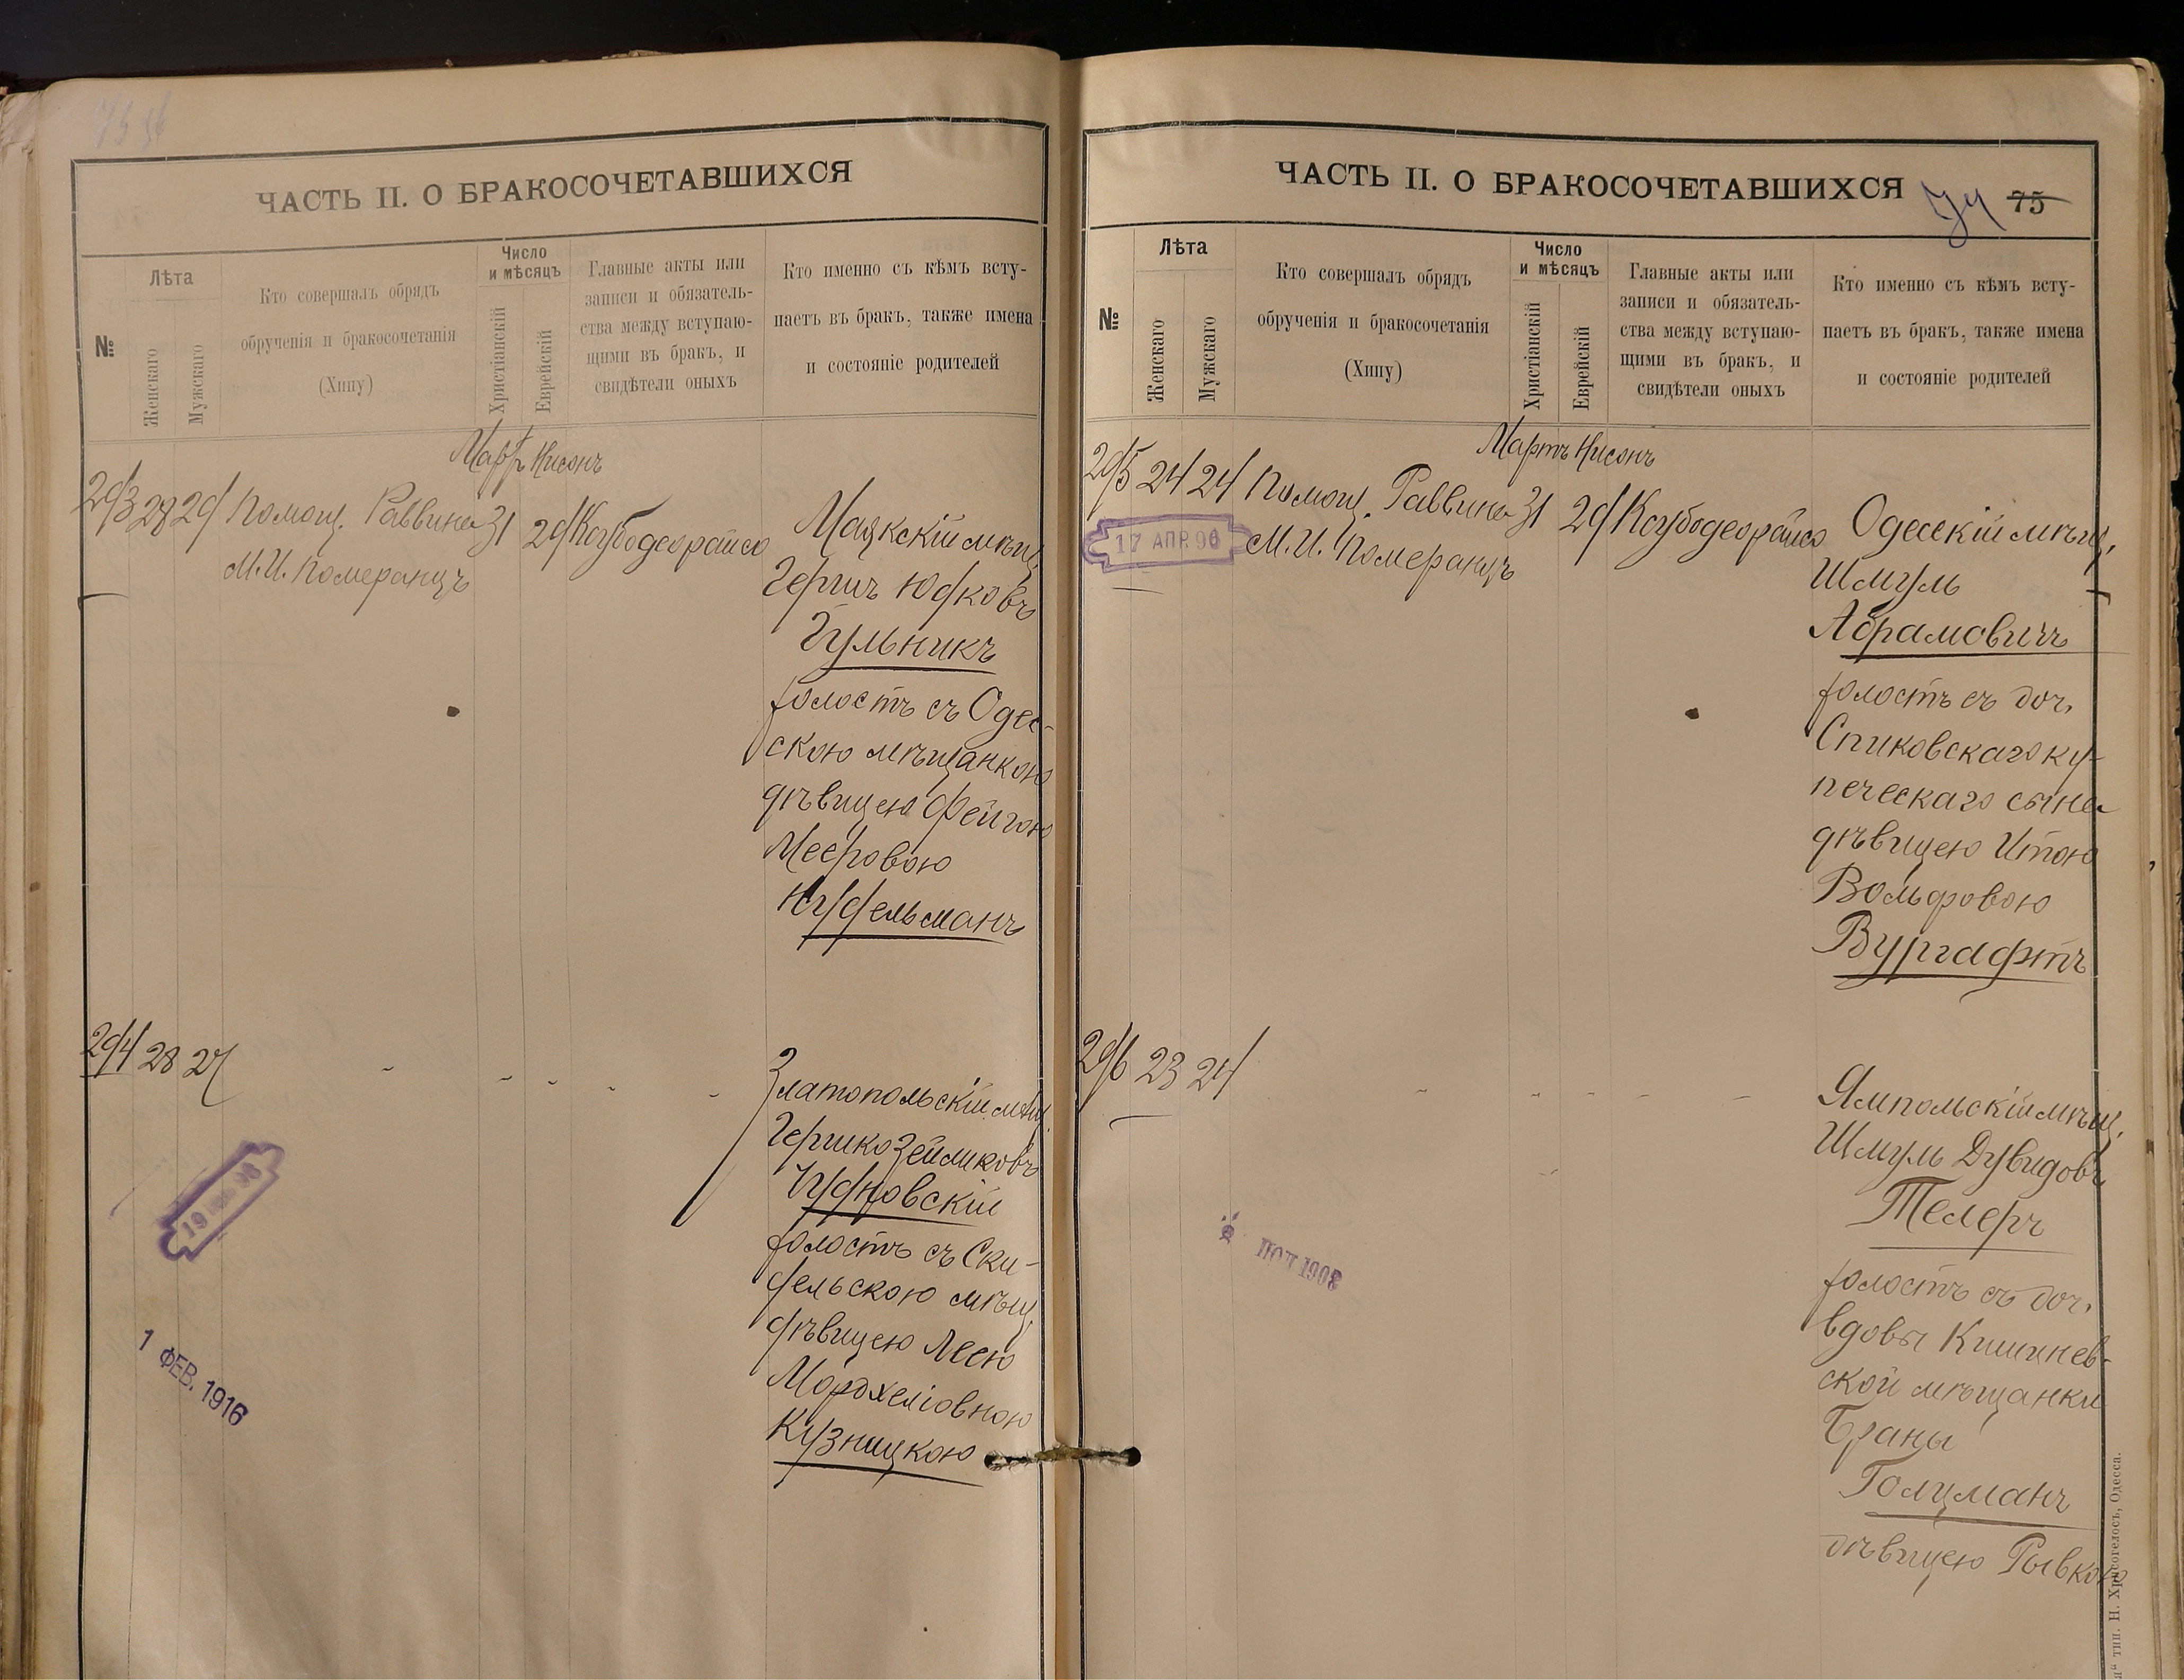 ЧАСТЬ II. О БРАКОСОЧЕТАВШИХСЯ
№
Лѣта
Женскаго
Мужскаго
Кто совершалъ обрядъ
обрученія и бракосочетанія
(Хипу)
Число
и мѣсяцъ
Христіанскій
Еврейскій
Главные акты или
записи и обязатель-
ства между вступаю-
щими въ бракъ, и
свидѣтели оныхъ
Кто именно съ кѣмъ всту-
паетъ въ бракъ, также имена
и состояніе родителей
Мартъ Нисонъ
293 28 29 Помощ. Раввина 31 29
М.И. Померанцъ
Маякскій мѣщ.
Гершъ
Гульникъ
холостъ съ Одес-
скою мѣщанкою
дѣвицею Фейгою
Мееровою
294 28 27
Златопольскій мѣщ.
Гершко Зейликовъ
Чудновскій
холостъ съ Скви-
рельскою мѣщ.
дѣвицею Леею
Мордхеліовною
Кузницкою
1 ФЕВ. 1916
ЧАСТЬ II. О БРАКОСОЧЕТАВШИХСЯ
74 75
№
Лѣта
Женскаго
Мужскаго
Кто совершалъ обрядъ
обрученія и бракосочетанія
(Хипу)
Число
и мѣсяцъ
Христіанскій
Еврейскій
Главные акты или
записи и обязатель-
ства между вступаю-
щими въ бракъ, и
свидѣтели оныхъ
Кто именно съ кѣмъ всту-
паетъ въ бракъ, также имена
и состояніе родителей
Мартъ Нисонъ
295 24 24 Помощ. Раввина 31 29
М.И. Померанцъ
17 АПР. 96
Одесскій мѣщ.
Шмуль
Абрамовичъ
холостъ съ доч.
Спиковскаго ку-
печескаго сына
дѣвицею Итою
Вольфовою
Вургафтъ
296 23 24
Ямпольскій мѣщ.
Шмуль Дувидовъ
Телеръ
холостъ съ доч.
вдовы Кишинев-
ской мѣщанки
Браны
Голцманъ
дѣвицею Рывкою
1908
тип. Н. Хрисогелосъ, Одесса.